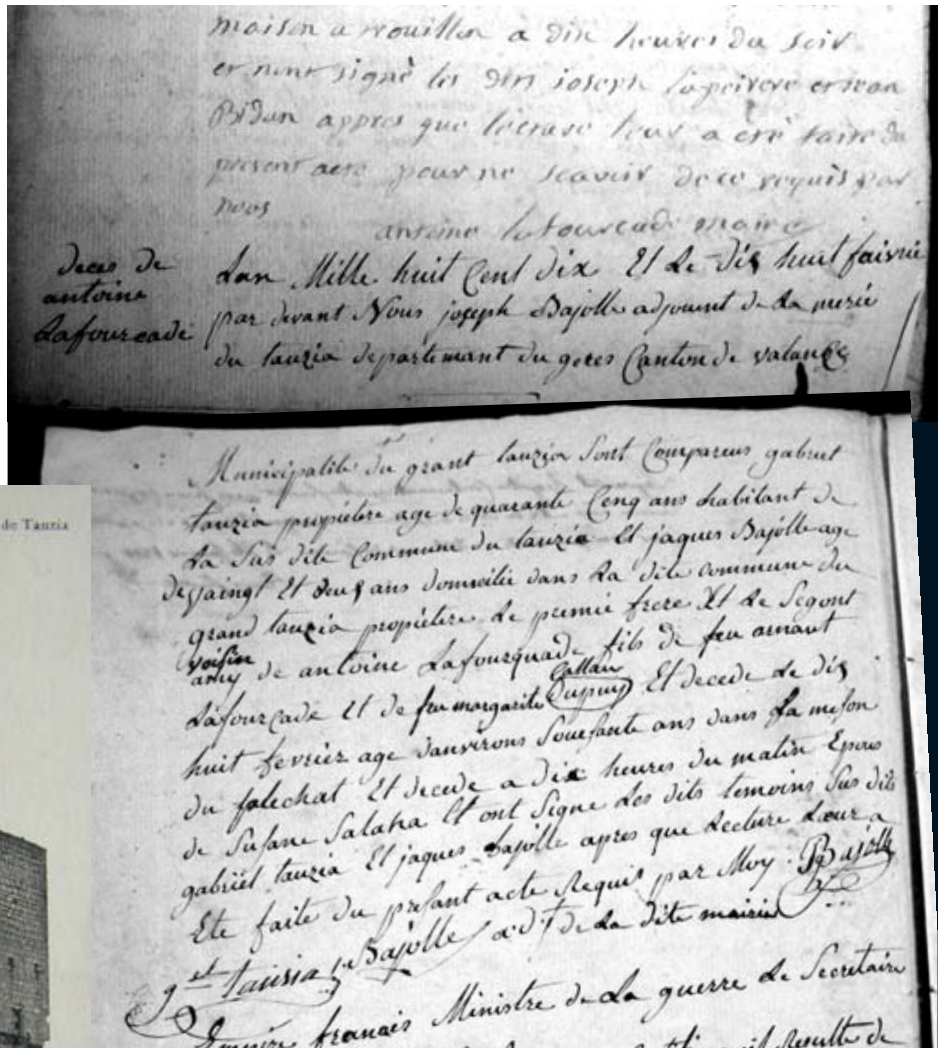 maison a rrouillon a dix heures du soir
et nont signé les dits joseph et jean
Bidan appres que lecture leur a eté faite du
present acte pour ne scavoir de ce requis par
nous
antoine lafourcade maire
deces de
antoine
Lafourcade
Lan Mille huit Cent dix Et Le dix huit faivrié
par devant Nous joseph Bajolle adjouent de La merié
du tauzia departemant du geres Canton de valance
Municipalité du grant tauzia Sont Compareus gabriel
tauzia propiétere age de quarante Cenq ans habitant de
La Sus dite Commune du tauzia Et jaques Bajolle age
de vaingt Et deus ans domicilié dans La dite commune du
grand tauzia propiétere Le premié frere Et Le Segont
voisin
amy de antoine Lafourquade fils de feu arnaut
Lafourcade Et de feu margarite Dupuy Et decede Le dix
huit fevrier age danvirons Souesante ans dans La meson
du falechat Et decede a dix heures du matin Epous
de Susane Salaha Et ont Signe Les dits temoins Sus dits
gabriël tauzia Et jaques Bajolle apres que Lecture Lœur a
Ete faite du presant acte Requis par Moy. Bajolle
g.et Tausia Bajolle ad.t de La dite mairie
Empire franais Ministre de La guerre Le Secretaire
Resulte de
de Tauzia